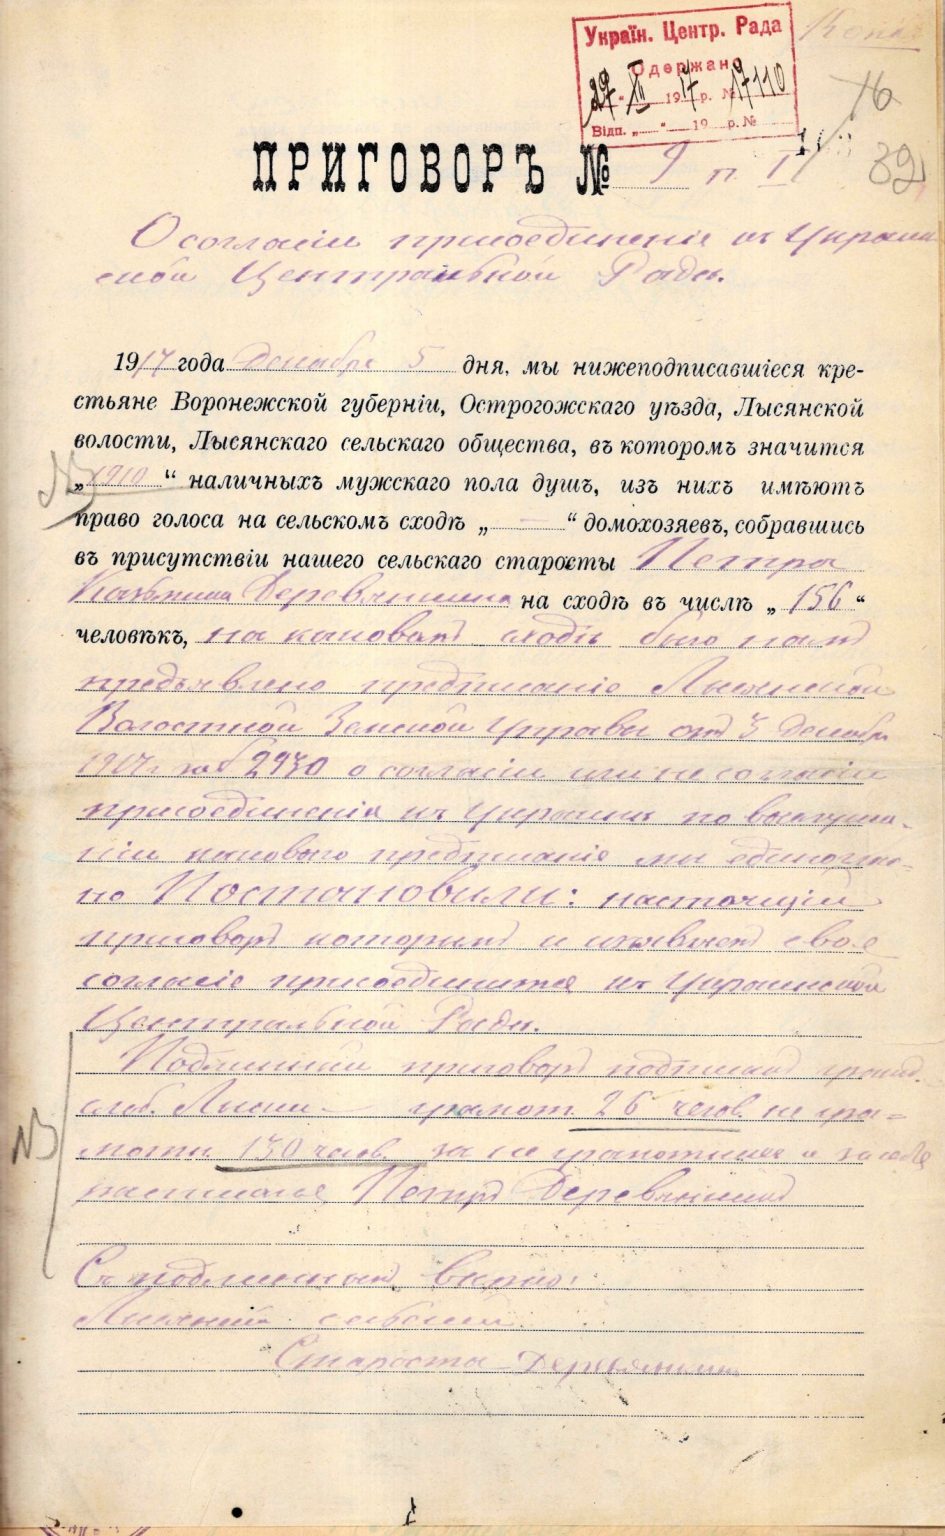 Копія
Україн. Центр. Рада
Одержано
29 XII 1917 р. № 17110
Відп. „ “ 19 р. №
76
ПРИГОВОРЪ № 9 п. 1
32
О согласіи присоединенія къ Украин
ской Центральной Рады.
1917 года Декабря 5 дня, мы нижеподписавшіеся кре-
стьяне Воронежской губерніи, Острогожскаго уѣзда, Лысянской
волости, Лысянскаго сельскаго общества, въ которомъ значится
„1910“ наличныхъ мужскаго пола душъ, изъ нихъ имѣютъ
право голоса на сельскомъ сходѣ „—“ домохозяевъ, собравшись
въ присутствіи нашего сельскаго старосты Петра
Деревянкина на сходѣ въ числѣ „156“
человѣкъ, на каковомъ сходѣ было намъ
предъявлено предписаніе Лысянской
Волостной Земской Управы отъ 3 Декабря
1917 г. за № 2930 о согласіи или не согласіи
присоединенія къ Украинѣ по выслуша-
ніи каковаго предписанія мы единоглас-
но Постановили: настоящій
приговоръ которымъ и изъявляемъ свое
согласіе присоединится къ Украинской
Центральной Рады.
Подлинный приговоръ подписали гражд.
слоб. Лысянки — грамот. 26 челов. не гра-
мотн. 130 челов. за не грамотныхъ и за себе
росписался Петръ Деревянкинъ
Съ подлиннымъ вѣрно:
Лысянскій сельскій
Староста Деревянкинъ